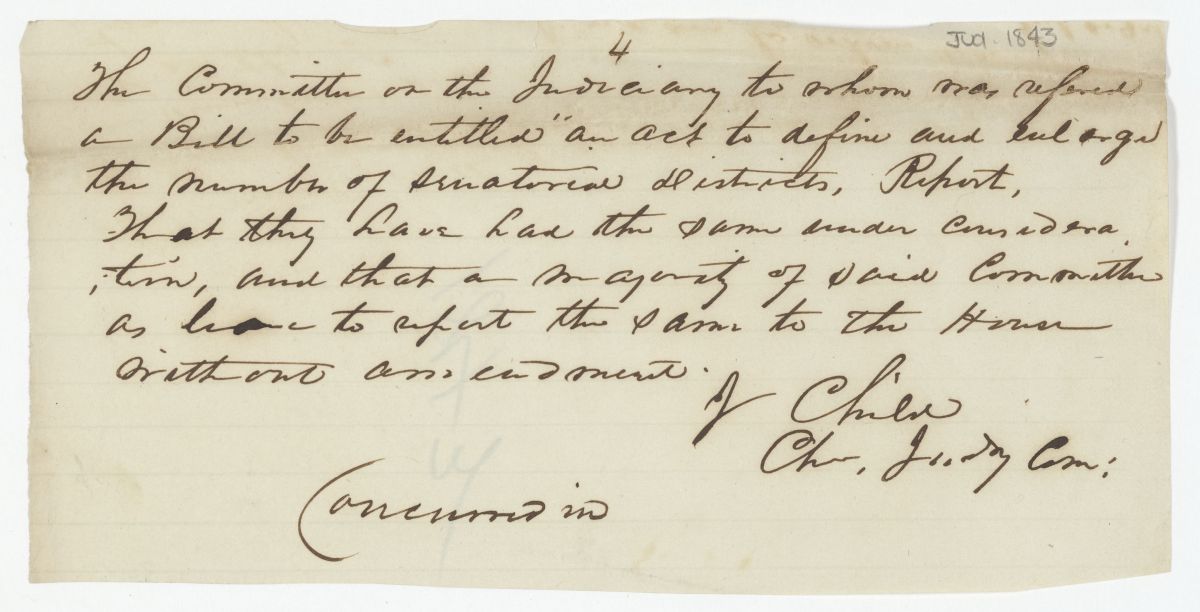 4
Jud. 1843
The Committee on the Judiciary to whom was refered
a Bill to be entitled "an act to define and enlarge
the number of senatorial districts, Report,
That they have had the same under considera
tion, and that a majority of said Committee
as leave to report the same to the House
without amendment.
J Child
Chr, Judy Com:
Concurred in